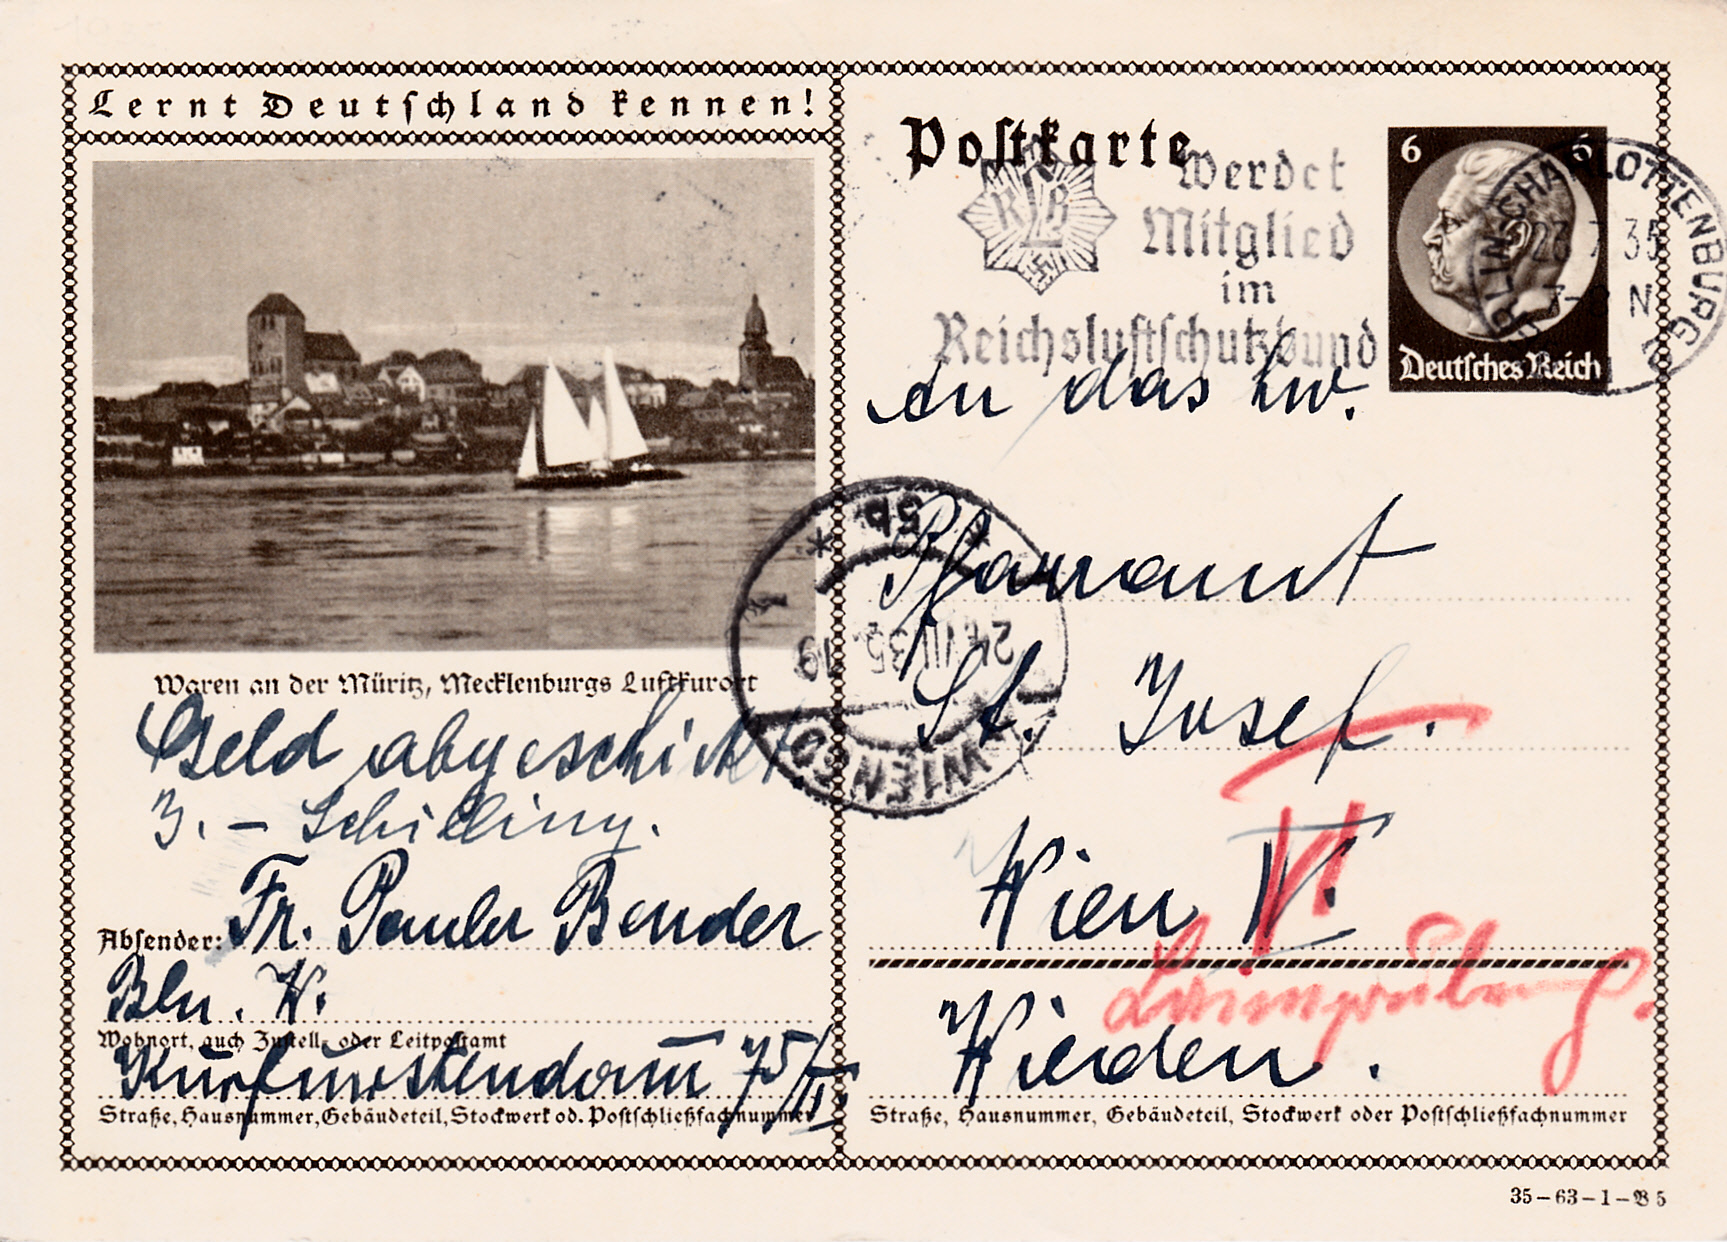 Lernt Deutschland kennen!
Waren an der Müritz, Mecklenburgs Luftkurort
Geld abgeschickt
3.– Schilling.
Absender: Fr. Paula Bender
Bln. W.
Wohnort, auch Zustell- oder Leitpostamt
Kurfürstendamm 75/II
Straße, Hausnummer, Gebäudeteil, Stockwerk od. Postschließfachnummer
Postkarte
RLB
Werdet
Mitglied
im
Reichsluftschutzbund
6 6
Deutsches Reich
BERLIN-CHARLOTTENBURG 2
23.7.35
N
An das hw.
Pfarramt
St. Josef.
Wien IV.
VI
Wieden.
Straße, Hausnummer, Gebäudeteil, Stockwerk oder Postschließfachnummer
* 5b *
24.VII.35 19
WIEN
35–63–1–B 5